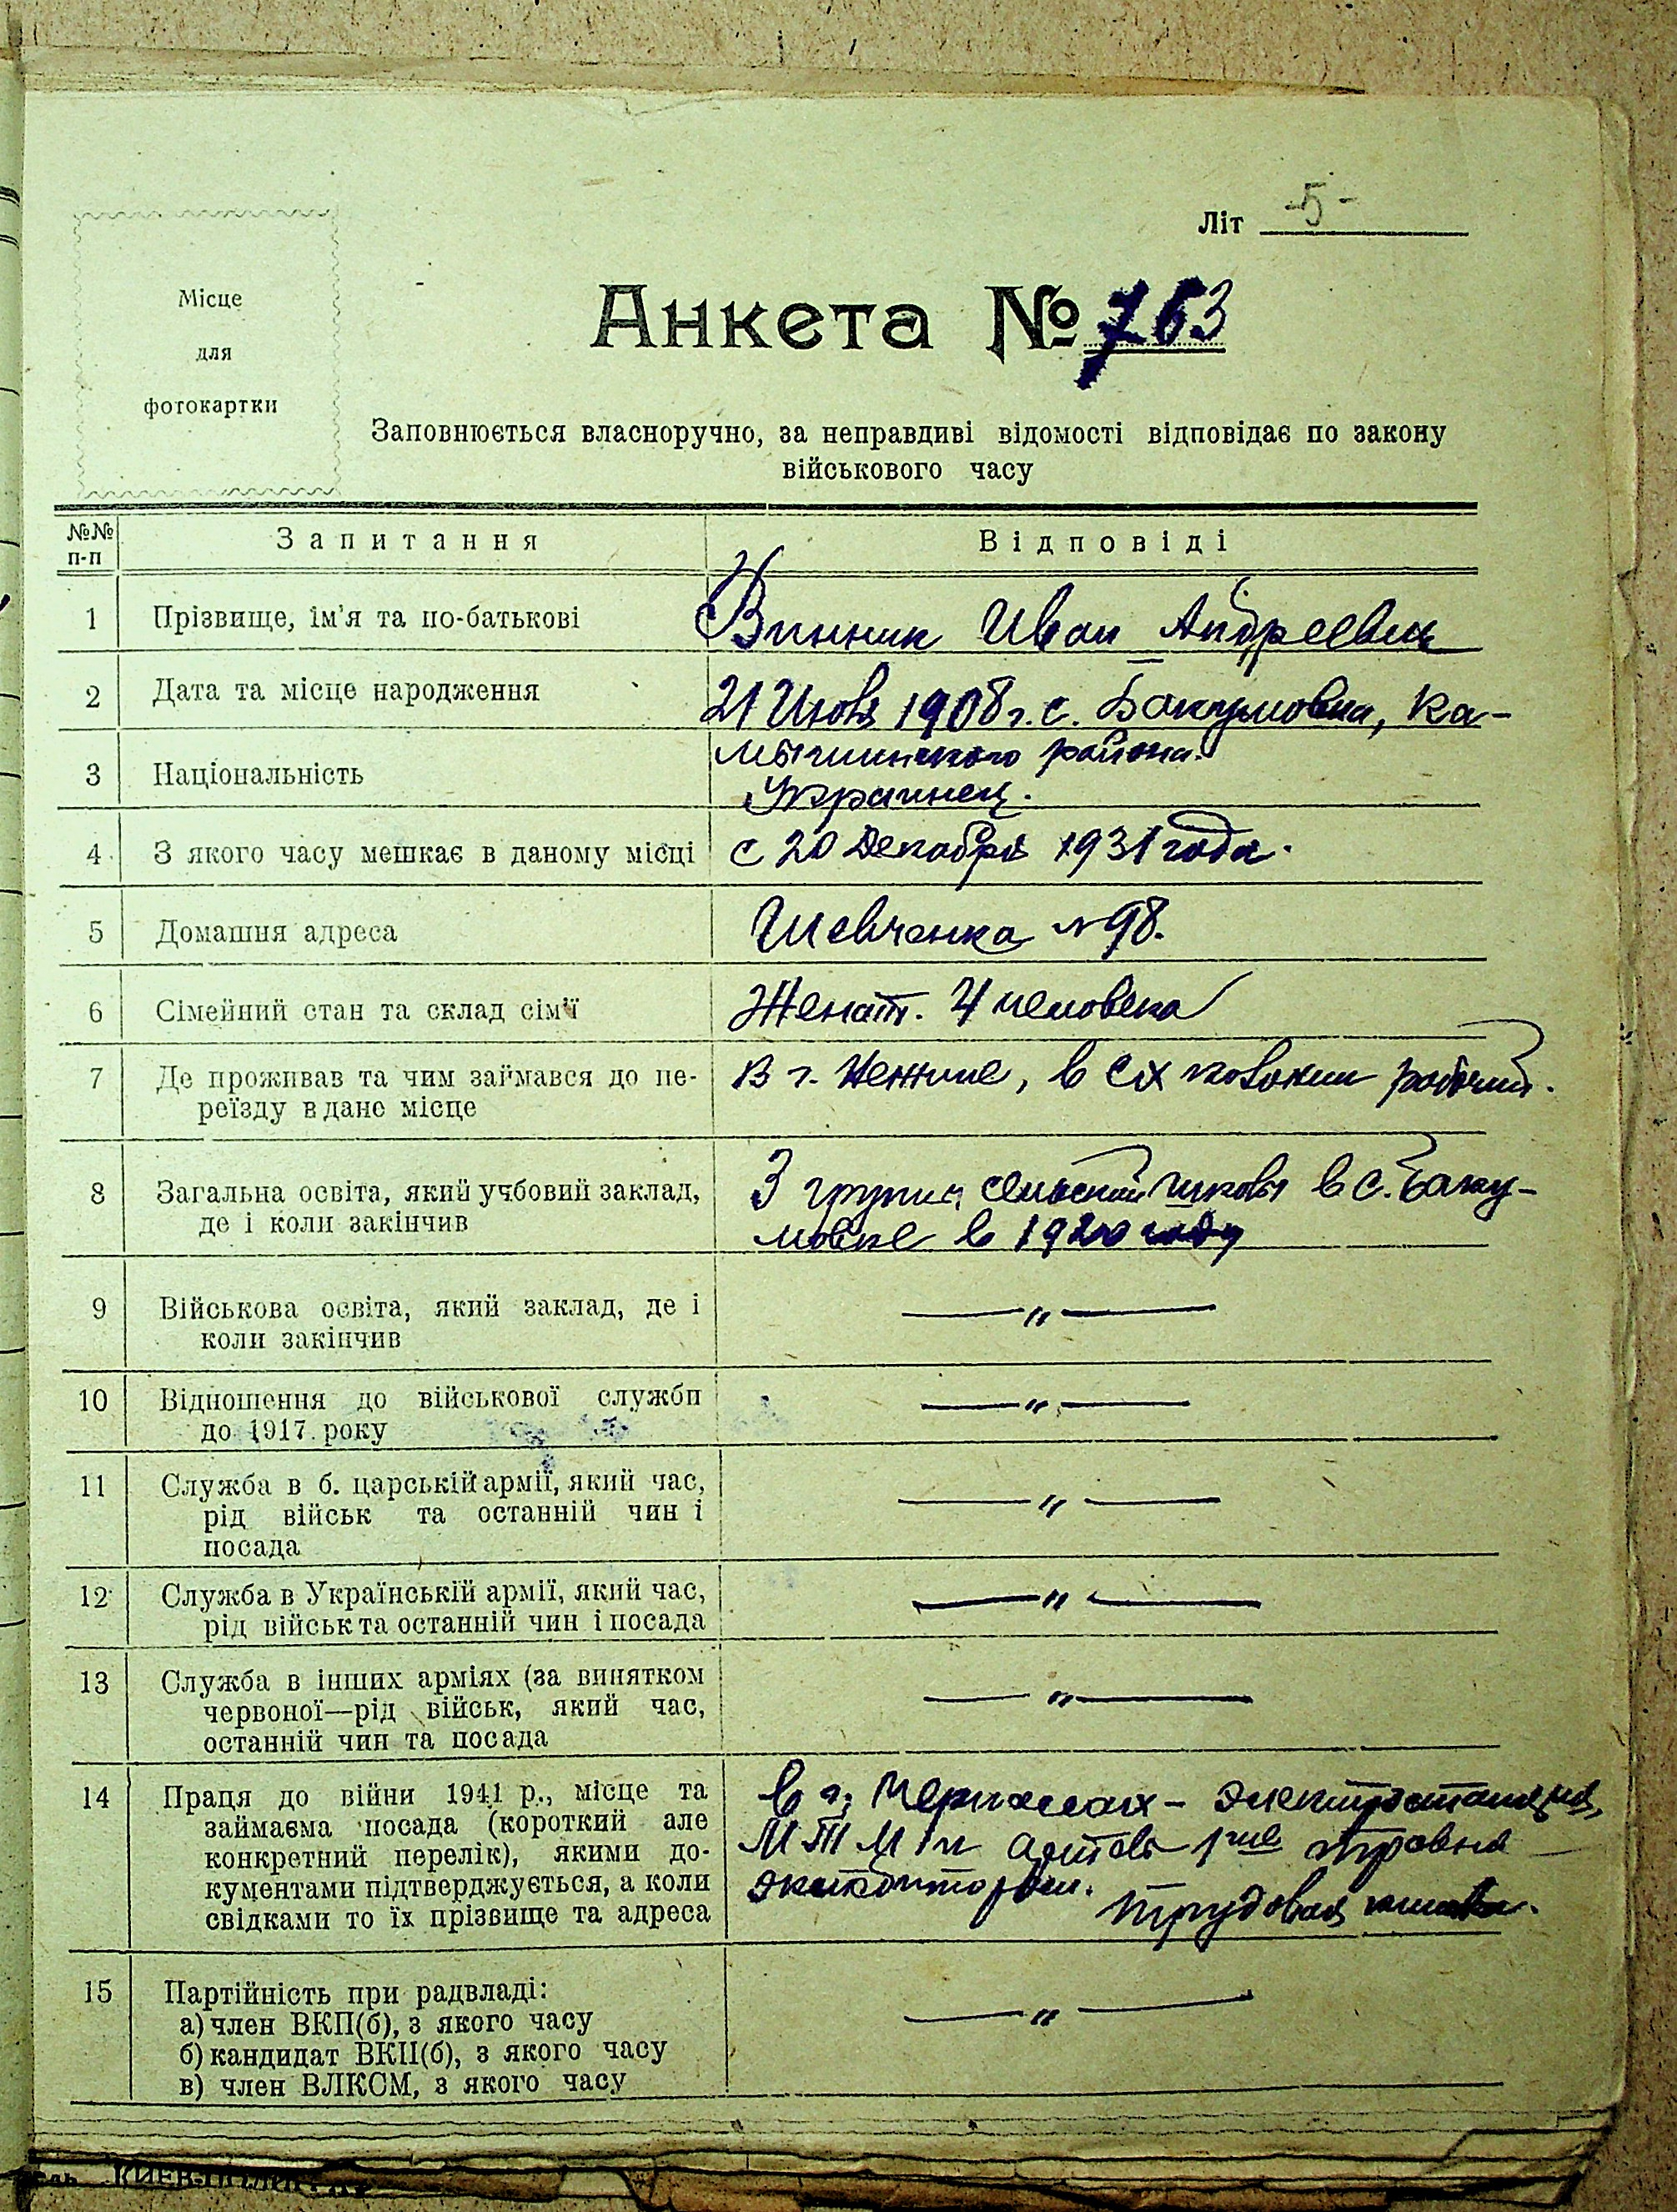 Літ -5-
Місце
для
фотокартки
Анкета № 763
Заповнюється власноручно, за неправдиві відомості відповідає по закону
військового часу
№№ п-п Запитання Відповіді
1 Прізвище, ім'я та по-батькові Винник Иван Андреевич
2 Дата та місце народження 21 Июля 1908 г. с. Бакумовка, Ка-
района.
3 Національність Украинец.
4 З якого часу мешкає в даному місці с 20 Декабря 1931 года.
5 Домашня адреса Шевченка № 98.
6 Сімейний стан та склад сім'ї Женат. 4 человека
7 Де проживав та чим займався до пе- В г. Нежине, в рабочий.
реїзду в дане місце
8 Загальна освіта, який учбовий заклад, 3 группы сельской школы в с. Баку-
де і коли закінчив мовке в 1920 году
9 Військова освіта, який заклад, де і — " —
коли закінчив
10 Відношення до військової служби — " —
до 1917 року
11 Служба в б. царській армії, який час, — " —
рід військ та останній чин і
посада
12 Служба в Українській армії, який час, — " —
рід військ та останній чин і посада
13 Служба в інших арміях (за винятком — " —
червоної—рід військ, який час,
останній чин та посада
14 Праця до війни 1941 р., місце та в г. Черкассах - электростанция,
займаєма посада (короткий але МТМ и
конкретний перелік), якими до-
кументами підтверджується, а коли Трудовая книжка.
свідками то їх прізвище та адреса
15 Партійність при радвладі: — " —
а) член ВКП(б), з якого часу
б) кандидат ВКП(б), з якого часу
в) член ВЛКСМ, з якого часу